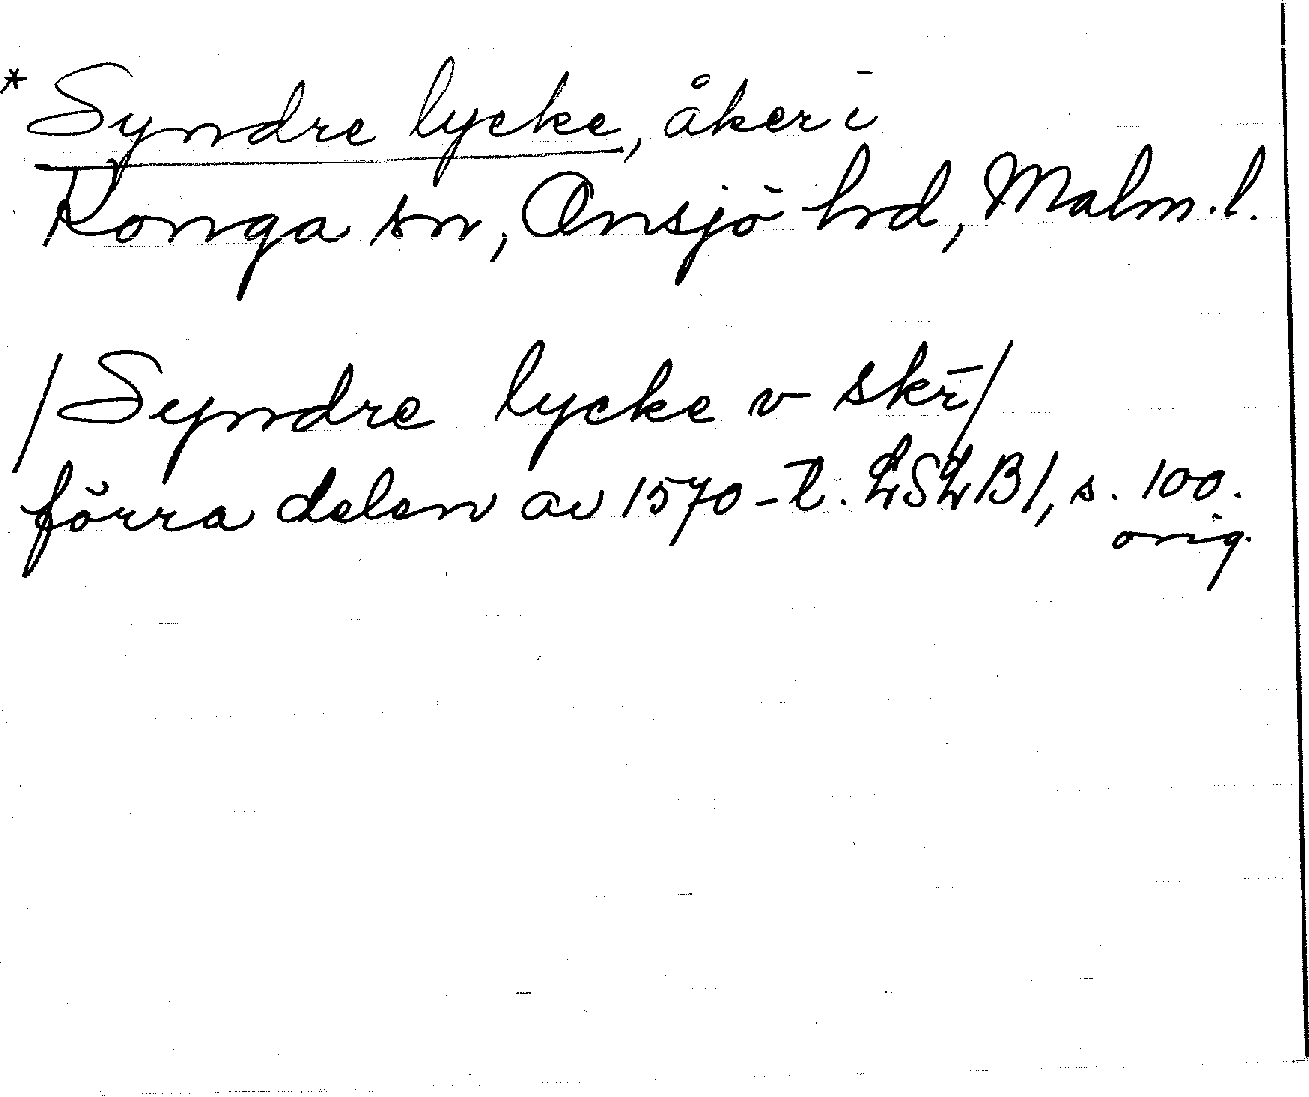 * Syndre lycke, åker i
Konga sn, Onsjö hrd, Malm. l.
/Syndre lycke v skr̄/
förra delen av 1570-t. LSLB 1, s. 100.
orig.